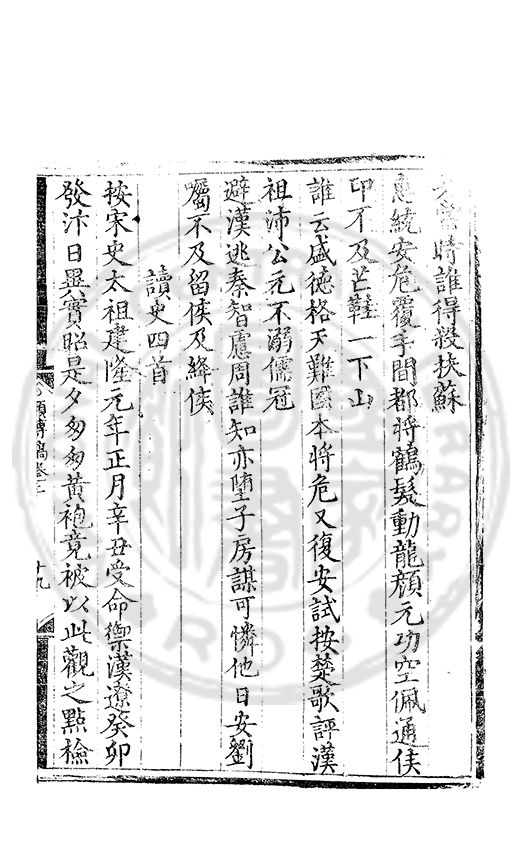 當時誰得殺扶蘇
惠統安危覆手間都將鶴髮動龍顏元功空佩通侯
印不及芒鞋一下山
誰云盛德格天難國本將危又復安試按楚歌評漢
祖沛公元不溺儒冠
避漢逃秦智慮周誰知亦墮子房謀可憐他日安劉
囑不及留侯及絳侯
讀史四首
按宋史太祖建隆元年正月辛丑受命禦漢遼癸卯
發汴日異實昭是夕匆匆黃袍竟被以此觀之點檢
稿卷二
十九